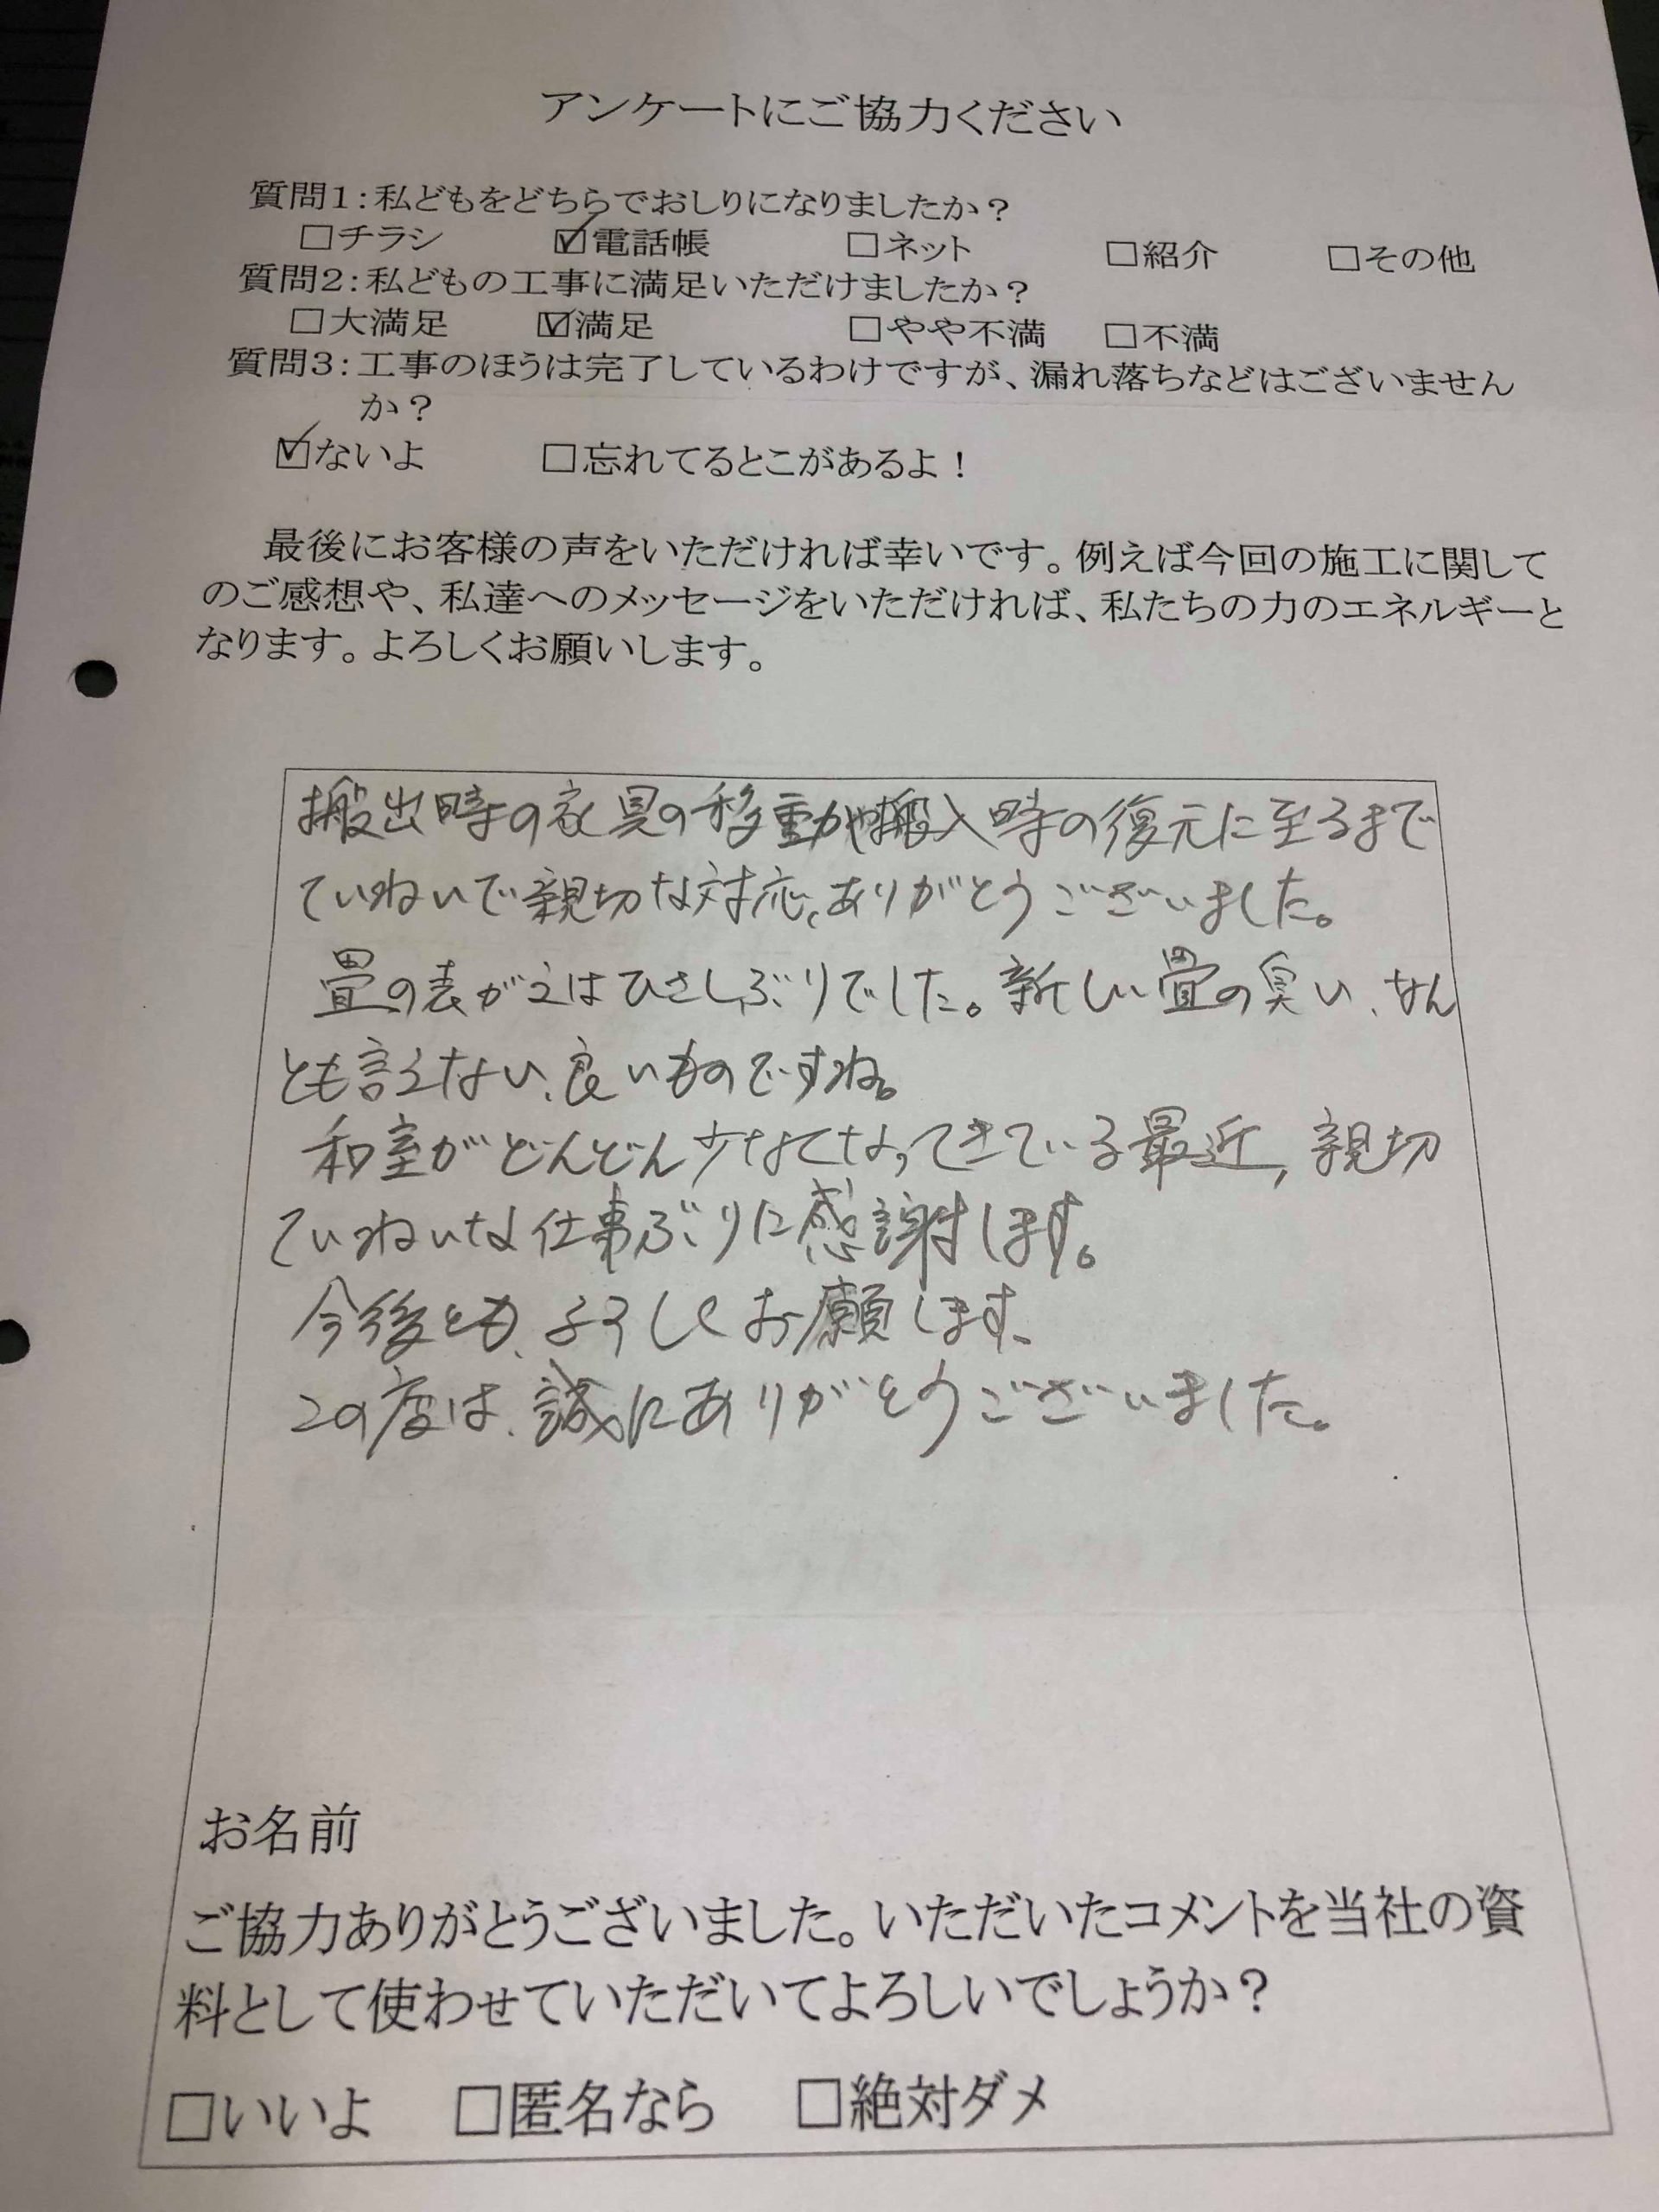 アンケートにご協力ください
質問1：私どもをどちらでおしりになりましたか？
□チラシ ☑電話帳 □ネット □紹介 □その他
質問2：私どもの工事に満足いただけましたか？
□大満足 ☑満足 □やや不満 □不満
質問3：工事のほうは完了しているわけですが、漏れ落ちなどはございません
か？
☑ないよ □忘れてるとこがあるよ！
最後にお客様の声をいただければ幸いです。例えば今回の施工に関して
のご感想や、私達へのメッセージをいただければ、私たちの力のエネルギーと
なります。よろしくお願いします。
搬出時の家具の移動や搬入時の復元に至るまで
ていねいで親切な対応、ありがとうございました。
畳の表がえはひさしぶりでした。新しい畳の臭い、なん
とも言えない、良いものですね。
和室がどんどん少なくなってきている最近，親切
ていねいな仕事ぶりに感謝します。
今後とも、よろしくお願します、
この度は、誠にありがとうございました。
お名前
ご協力ありがとうございました。いただいたコメントを当社の資
料として使わせていただいてよろしいでしょうか？
□いいよ □匿名なら □絶対ダメ